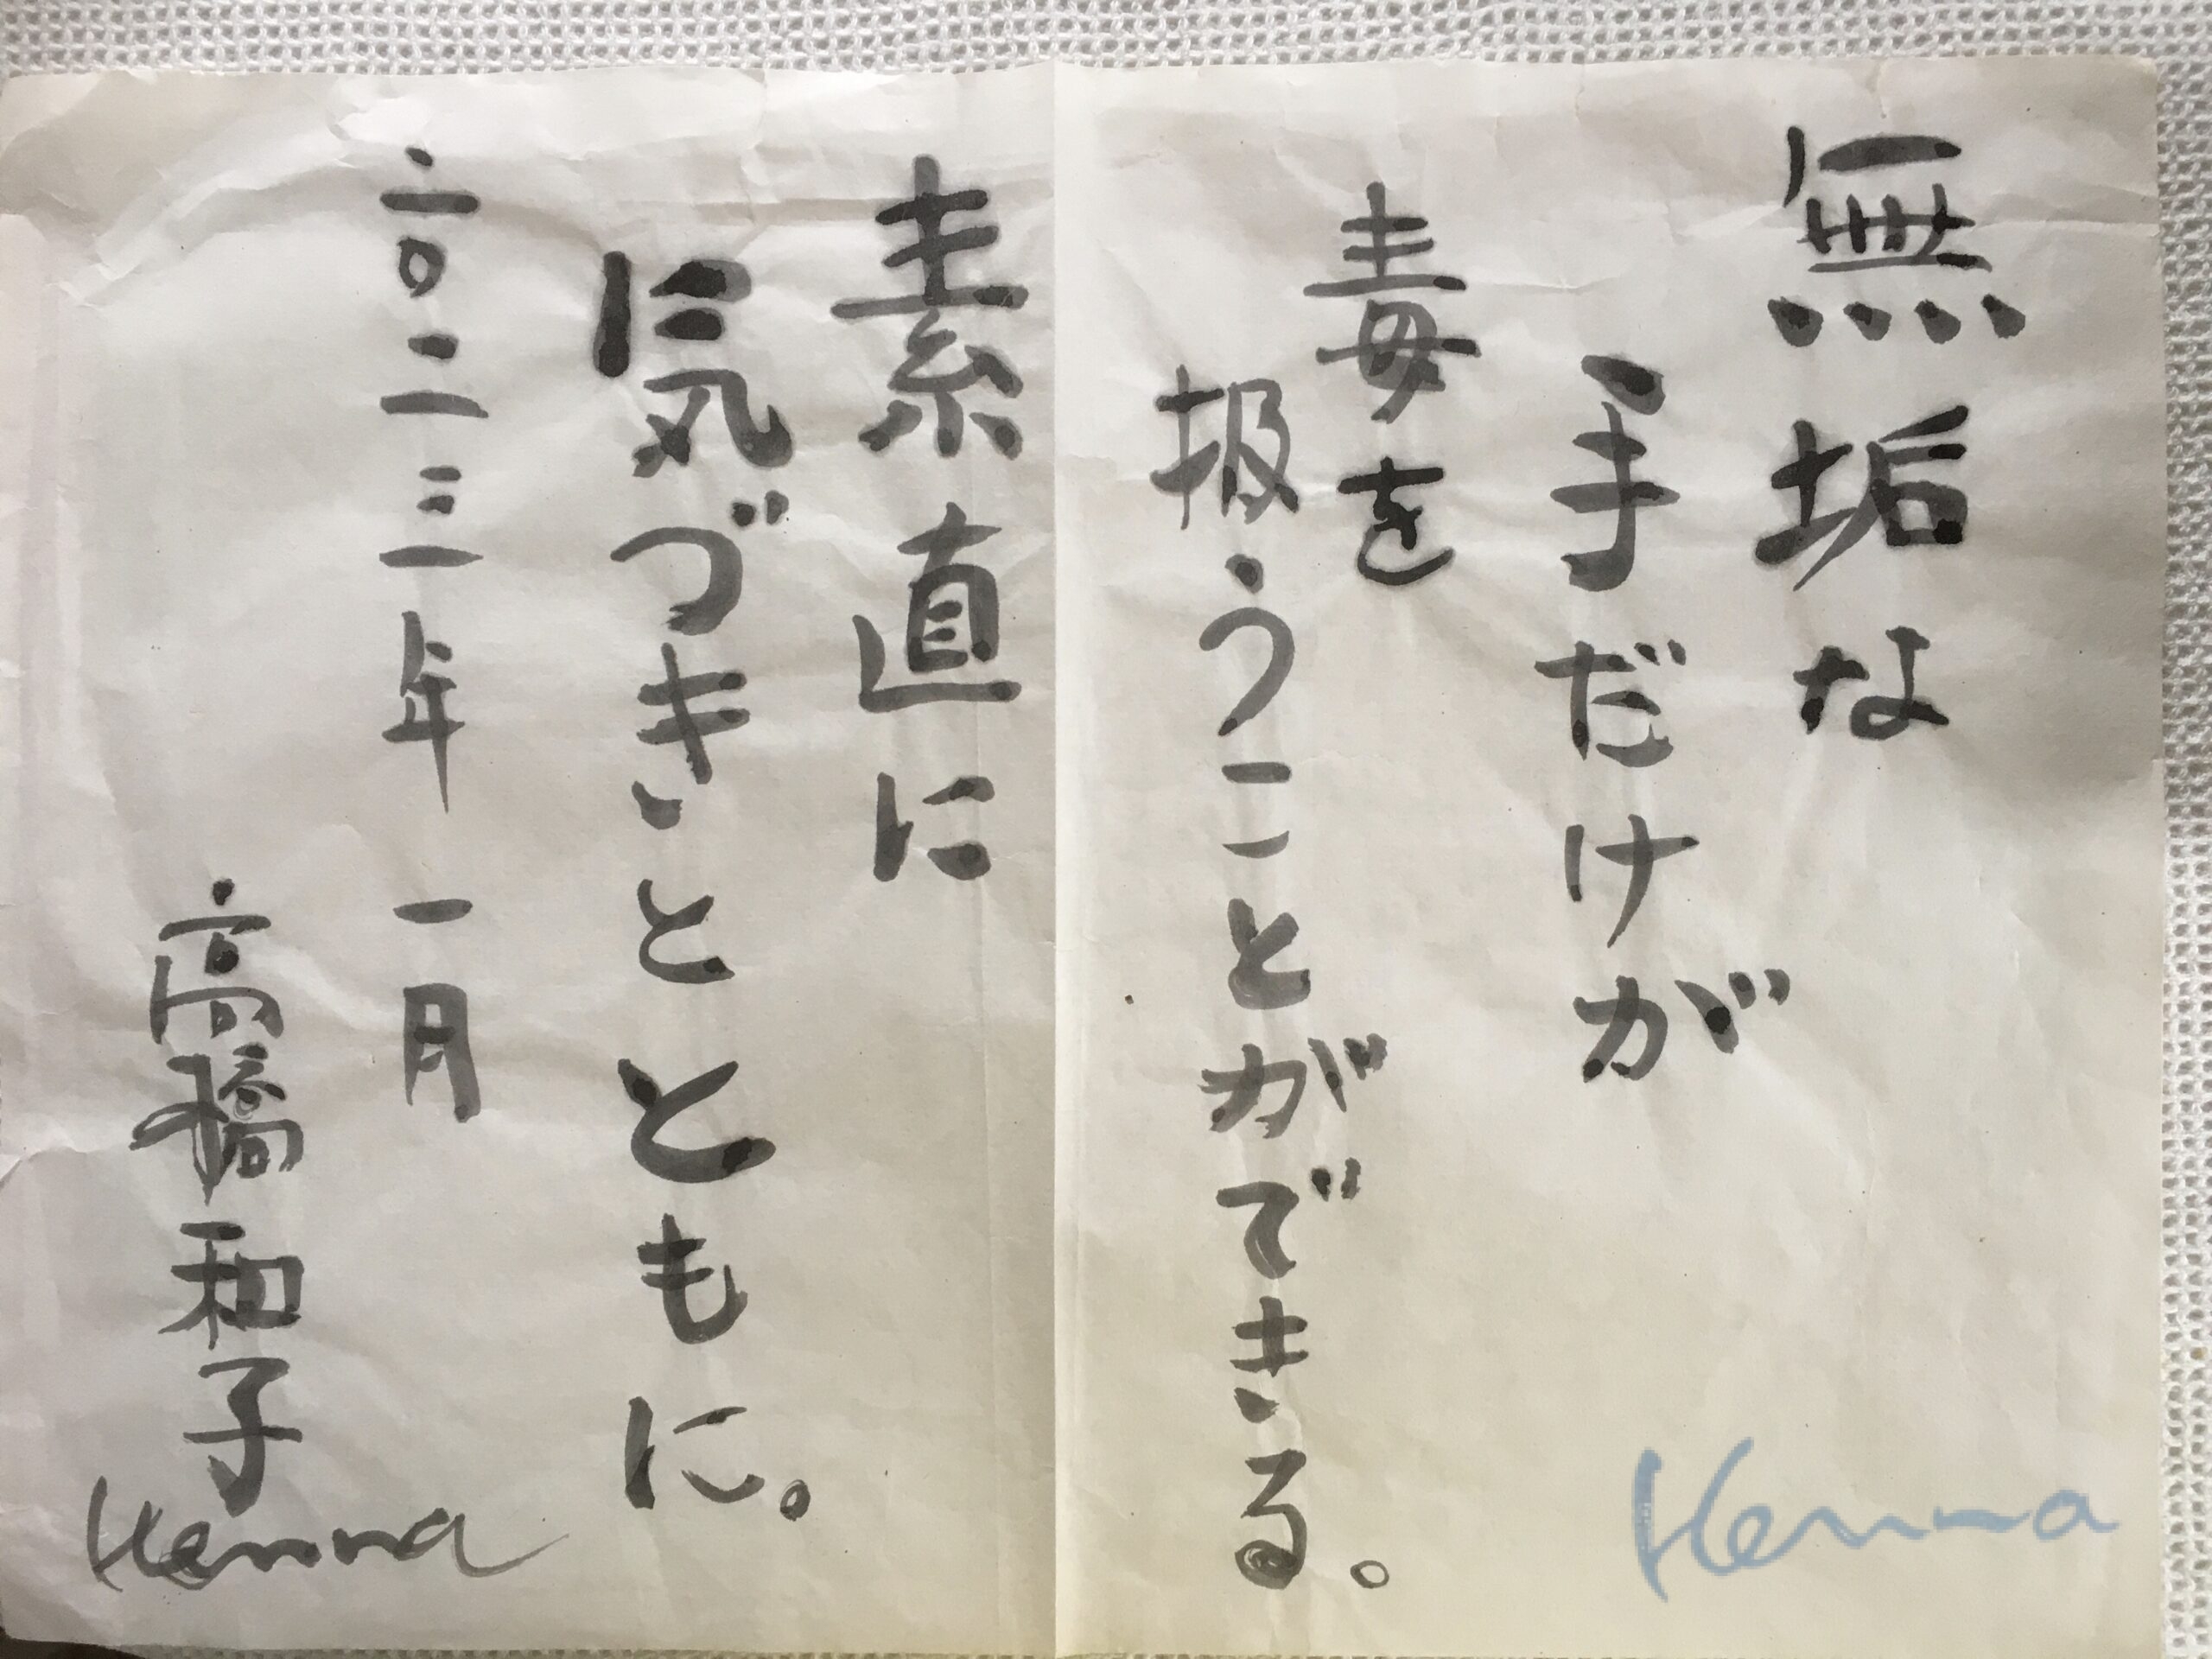 無垢な
手だけが
毒を
扱うことができる。
素直に
気づきとともに。
二〇二三年 一月
高橋和子
Henna
Henna